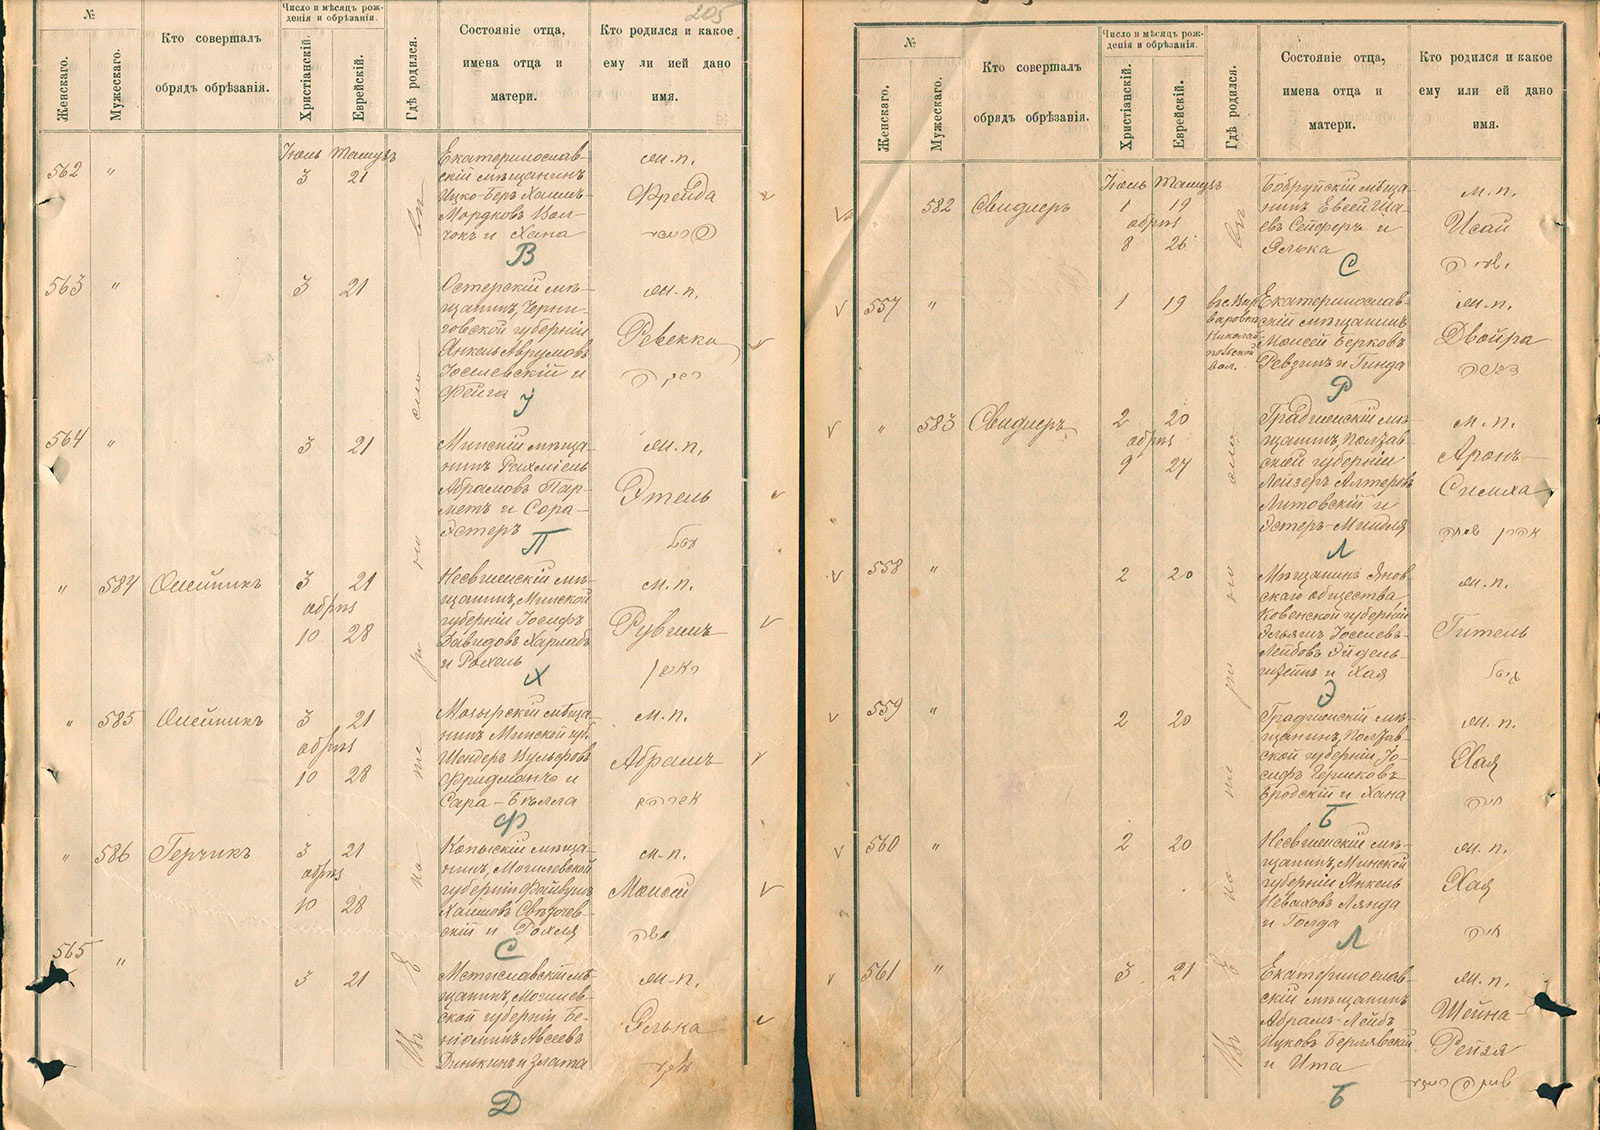 205
№
Женскаго.
Мужескаго.
Кто совершалъ
обрядъ обрѣзанія.
Число и мѣсяцъ рож-
денія и обрѣзанія.
Христіанскій.
Еврейскій.
Гдѣ родился.
Состояніе отца,
имена отца и
матери.
Кто родился и какое
ему ли ией дано
имя.
562 "
Іюль Тамузъ
3 21
Екатеринослав-
скій мѣщанинъ
Ицко-Беръ Хаимъ-
Мордковъ Вол-
чокъ и Хана
В
м.п.
Фрейда
563 "
3 21
Остерскій мѣ-
щанинъ, Черни-
говской губерніи
Янкель Аврумовъ
Іоселевскій и
Фейга
м.п.
Ревекка
רבקה
564 "
3 21
Минскій мѣща-
нинъ Рахміель
Абрамовъ Пар-
метъ и Сора-
Эстеръ
П
м.п.
Этель
עטל
" 584 Олейникъ
3 21
обрѣз
10 28
Несвижскій мѣ-
щанинъ, Минской
губерніи Іосифъ
Давидовъ Харлабъ
и Рохель
Х
м.п.
Рувимъ
ראובן
" 585 Олейникъ
3 21
обрѣз
10 28
Мозырскій мѣща-
нинъ Минской губ.
Шендеръ Вульфовъ
Фридманъ и
Сара-Бейлла
Ф
м.п.
Абрамъ
אברהם
" 586 Герчикъ
3 21
обрѣз
10 28
Копыскій мѣща-
нинъ, Могилевской
губерніи Файвушъ
Хаимовъ
скій и Рохля
С
м.п.
Моисей
משה
565 "
3 21
Мстиславскій мѣ-
щанинъ, Могилев-
ской губерніи Бе-
ніоминъ Авсеевъ
Динькинъ и Злата
Д
м.п.
Элька
Въ Екатеринославѣ
№
Женскаго.
Мужескаго.
Кто совершалъ
обрядъ обрѣзанія.
Число и мѣсяцъ рож-
денія и обрѣзанія.
Христіанскій.
Еврейскій.
Гдѣ родился.
Состояніе отца,
имена отца и
матери.
Кто родился и какое
ему или ей дано
имя.
582 Свидлеръ
Іюль Тамузъ
1 19
обрѣз
8 26
Бобруйскій мѣща-
нинъ Евсей Иса-
евъ Сейферъ и
Элька
С
м.п.
Исай
557 "
1 19
въ с. Вар-
варовка
Никола-
польской
вол.
Екатеринослав-
скій мѣщанинъ
Моисей Берковъ
Ревзинъ и Гинда
Р
м.п.
Двойра
דבורה
" 583 Свидлеръ
2 20
обрѣз
9 27
Градижскій мѣ-
щанинъ, Полтав-
ской губерніи
Лейзеръ Алтеровъ
Литовскій и
Эстеръ-Миндля
Л
м.п.
Аронъ-
Симха
אהרן שמחה
558 "
2 20
Мѣщанинъ Янов-
скаго общества
Ковенской губерніи
Эльяшъ Іоселевъ-
Лейбовъ Эйдель-
штейнъ и Хая
Э
м.п.
Гитель
גיטל
559 "
2 20
Градижскій мѣ-
щанинъ, Полтав-
ской губерніи Іо-
сифъ Гершковъ
Бродскій и Хана
Б
м.п.
Хая
חיה
560 "
2 20
Несвижскій мѣ-
щанинъ, Минской
губерніи Янкель
Неваховъ Лянда
и Голда
Л
м.п.
Хая
חיה
561 "
3 21
Екатеринослав-
скій мѣщанинъ
Абрамъ-Лейбъ
Ицковъ Берлявскій
и Ита
Б
м.п.
Шейна-
Рейзя
Въ Екатеринославѣ